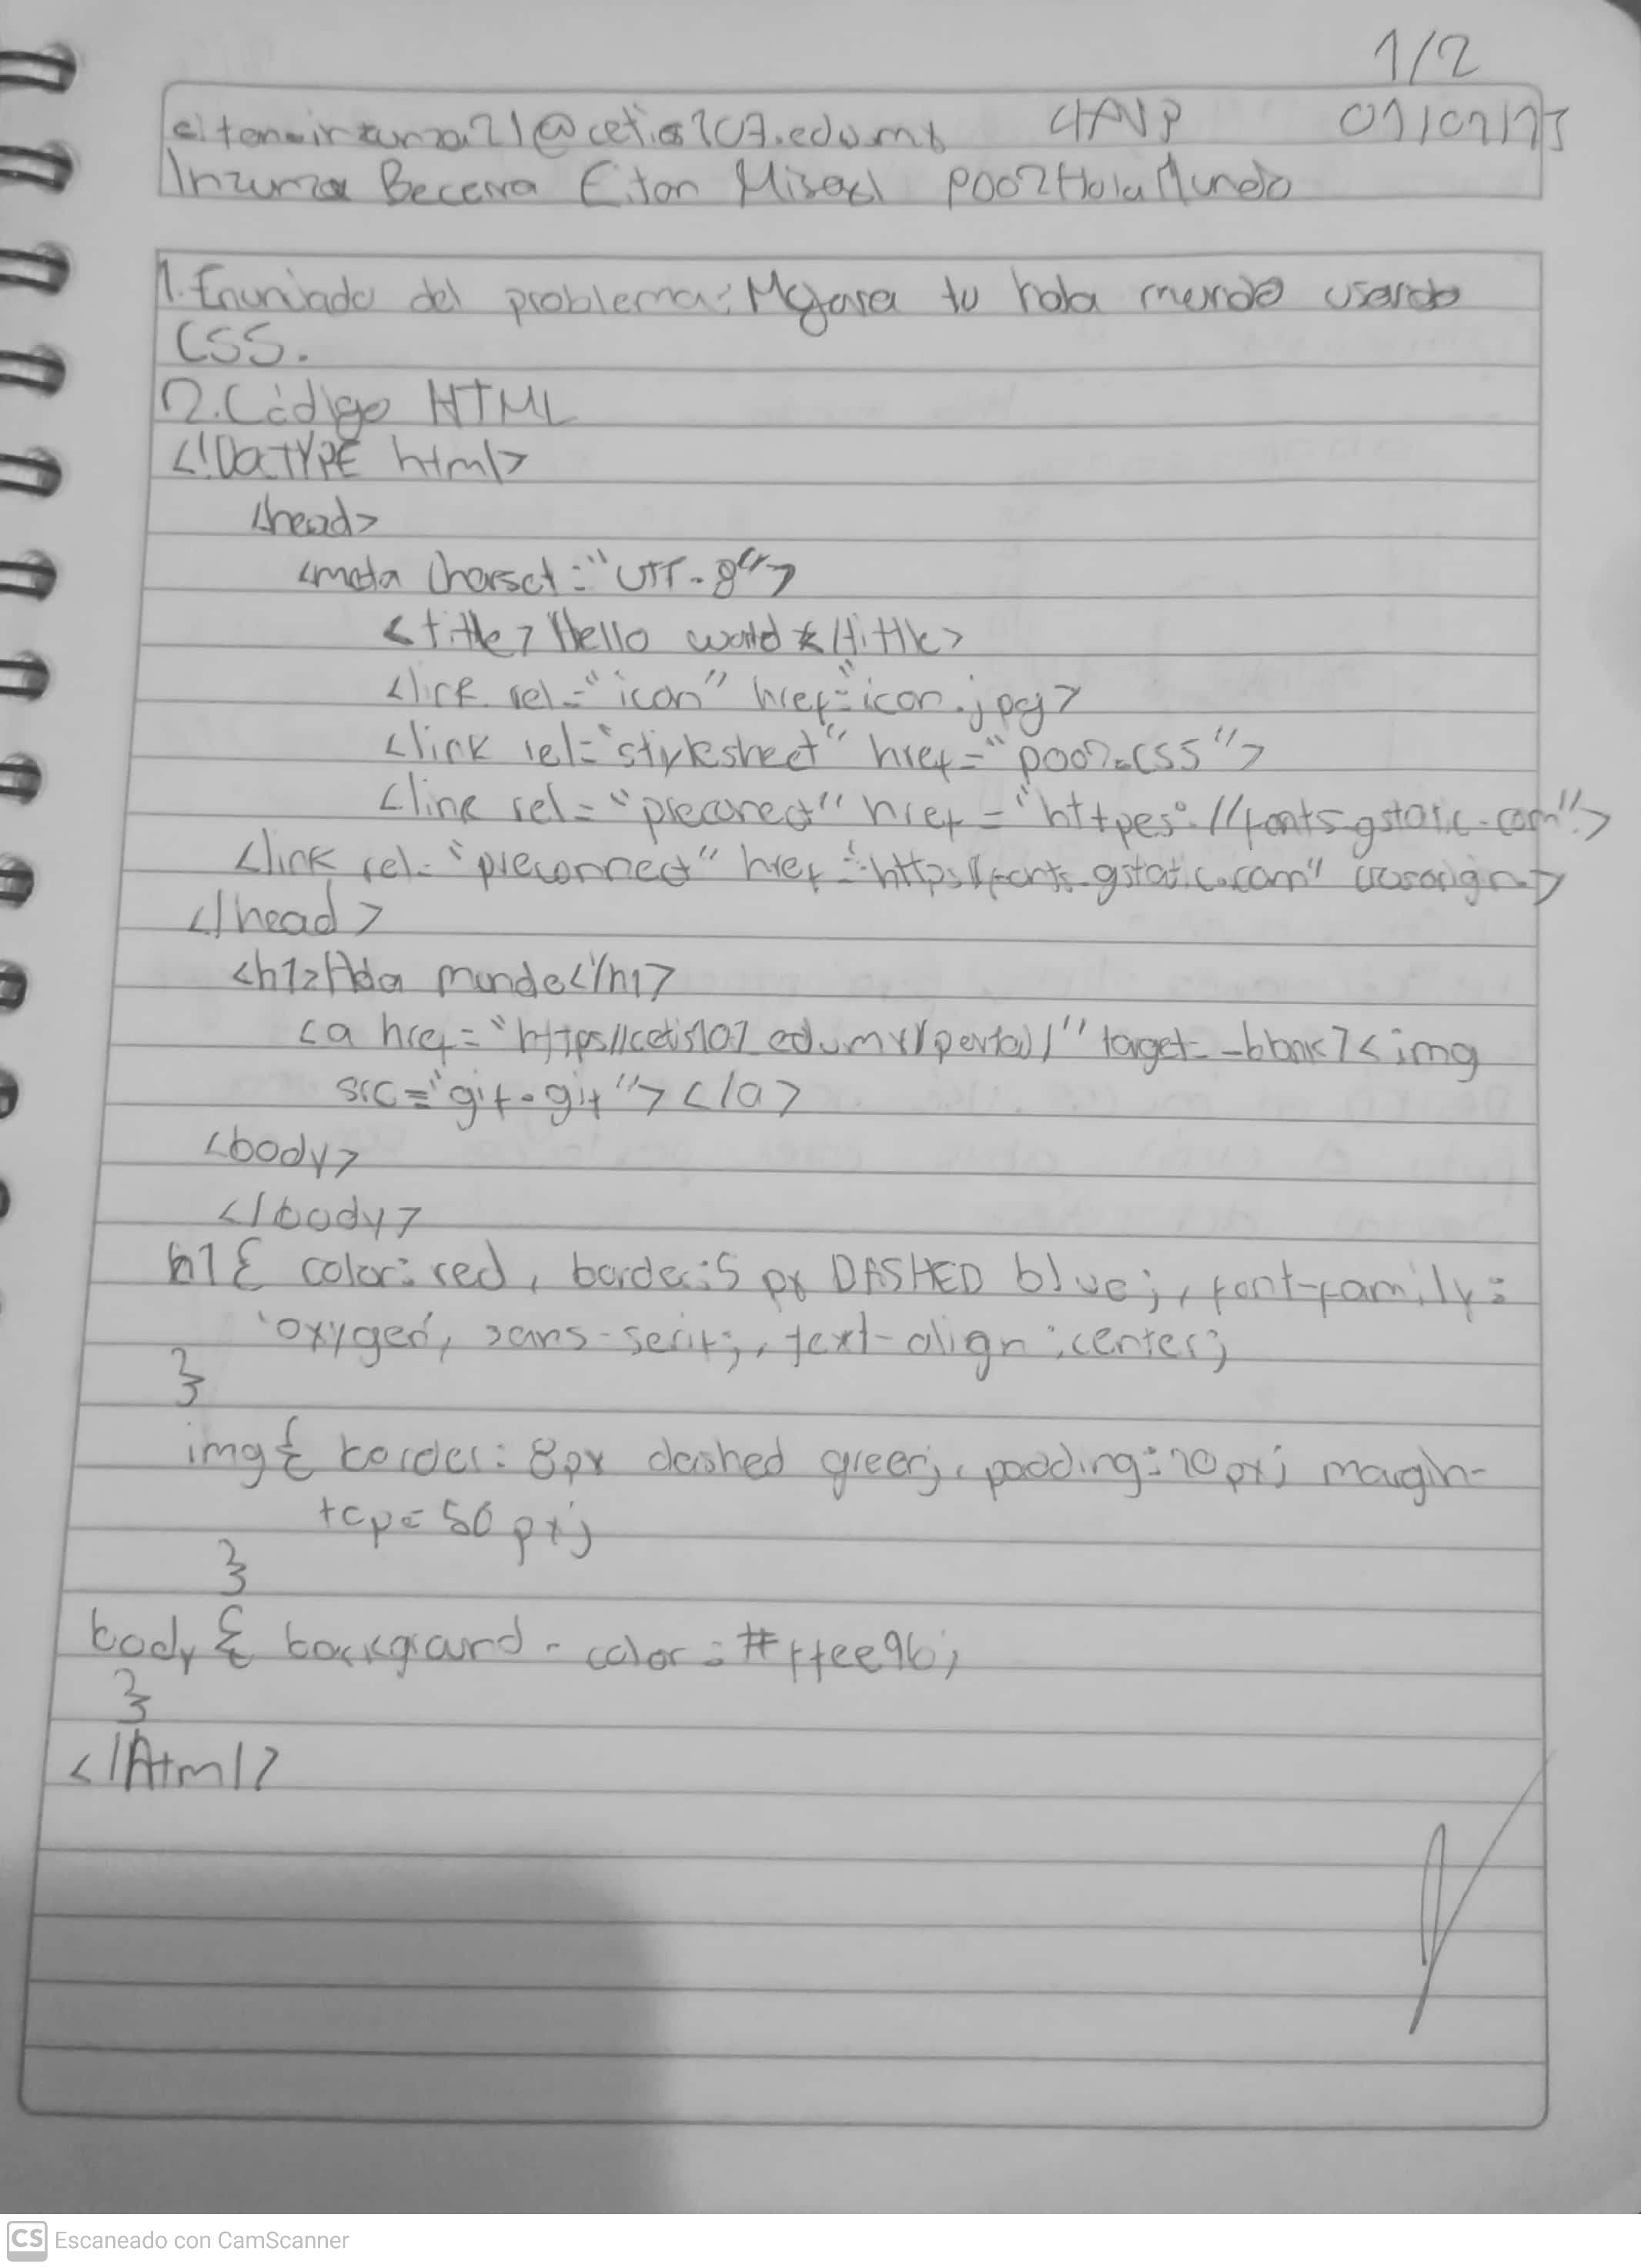 1/2
4AVP 07/02/23
Inzunza Becerra Eiton Misael P002HolaMundo
1. Enunciado del problema: Mejora tu hola mundo usando
CSS.
2. Código HTML
<!DOCTYPE html>
<head>
<meta charset="UTF-8">
<tittle>Hello world </tittle>
<link rel="icon" href="icon.jpg>
<link rel="stylesheet" href="P002.CSS">
<link rel="preconect" href="httpes://fonts.gstatic.com">
<link rel="preconnect" href="https//fonts.gstatic.com" crossorigin>
</head>
<h1>Hola mundo</h1>
<a href="https//cetis107.edu.mx/portal/" target=_blank><img
src="gif.gif"></a>
<body>
</body>
h1{ color: red, border:5 px DASHED blue;, font-family:
'oxygen', sans-serif;, text-align:center;
}
img{ border: 8px dashed green;, padding:20px; margin-
top=50px;
}
body { background-color: #ffee96;
}
</html>
CS Escaneado con CamScanner